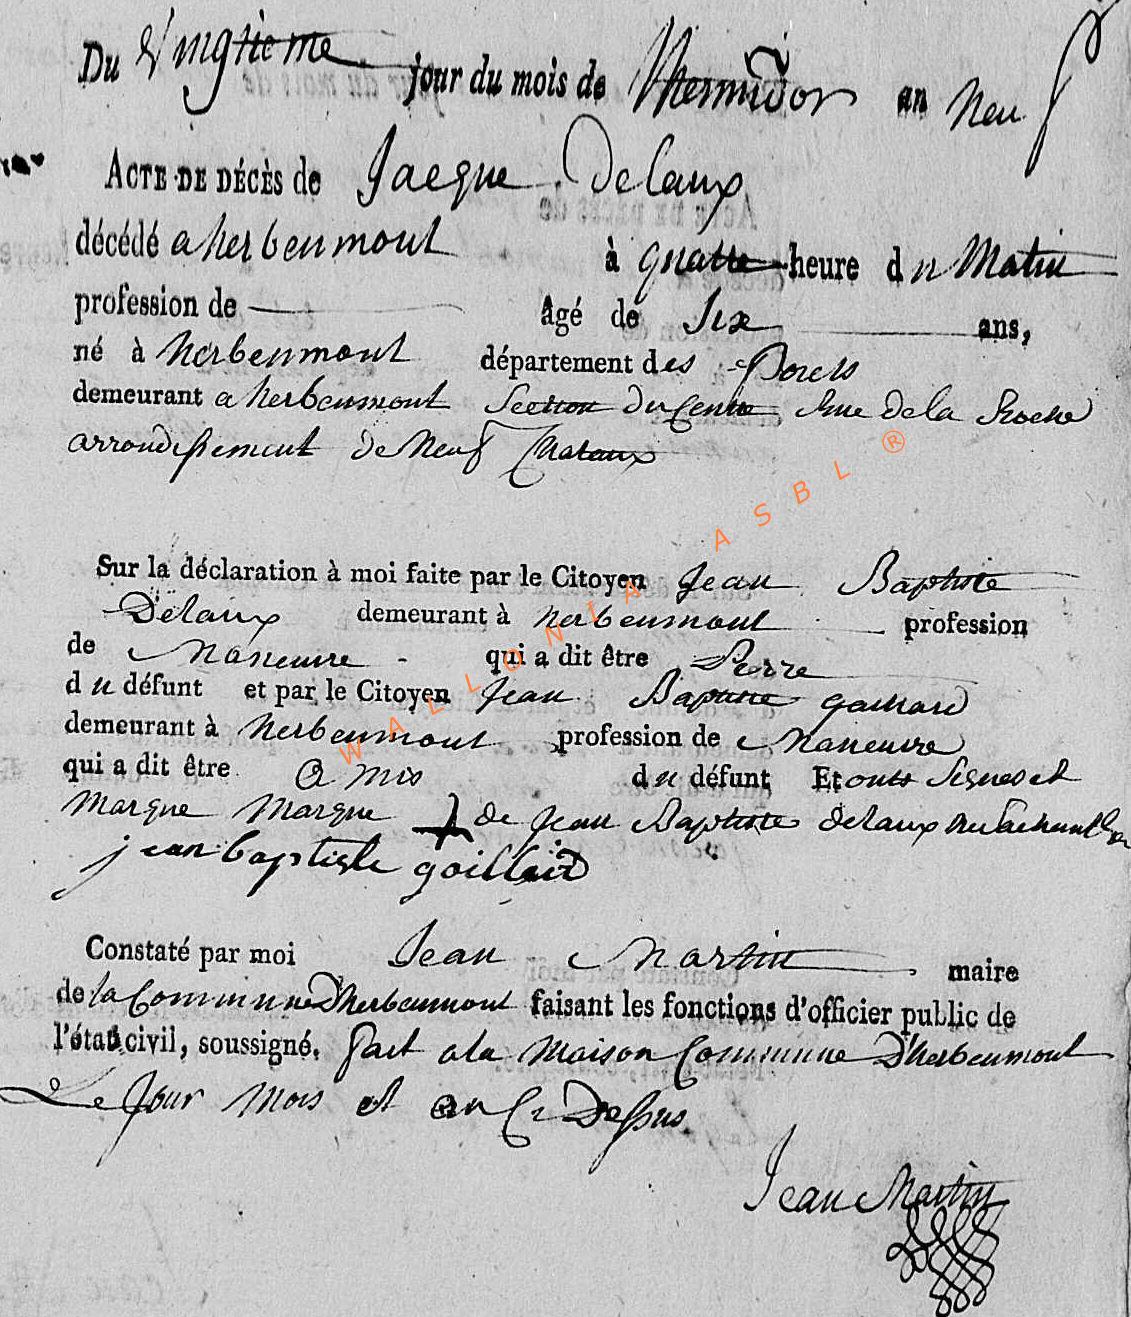 Du Vingtieme jour du mois de thermidor an neuf
ACTE DE DÉCÈS de Jacque Delaux
décédé a herbeumont à quattre heure du Matin
profession de âgé de Six ans,
né à herbeumont département des forets
demeurant a herbeumont Section du Centre Rue de la Roche
arrondissement de Neuf Chataux
Sur la déclaration à moi faite par le Citoyen Jean Baptiste
Delaux demeurant à herbeumont profession
de Maneuvre qui a dit être Perre
du défunt et par le Citoyen Jean Baptiste gaillard
demeurant à herbeumont profession de Maneuvre
qui a dit être Amis du défunt Et onts Signes et
Marque Marque + de Jean Baptiste delaux ne Sachant
jean baptiste gaillard
Constaté par moi Jean Martin maire
de la Commune D'herbeumont faisant les fonctions d'officier public de
l'état civil, soussigné. fait a la Maison Commune D'herbeumont
Le Jour Mois et an Ci Dessus
Jean Martin
WALLONIA ASBL ®